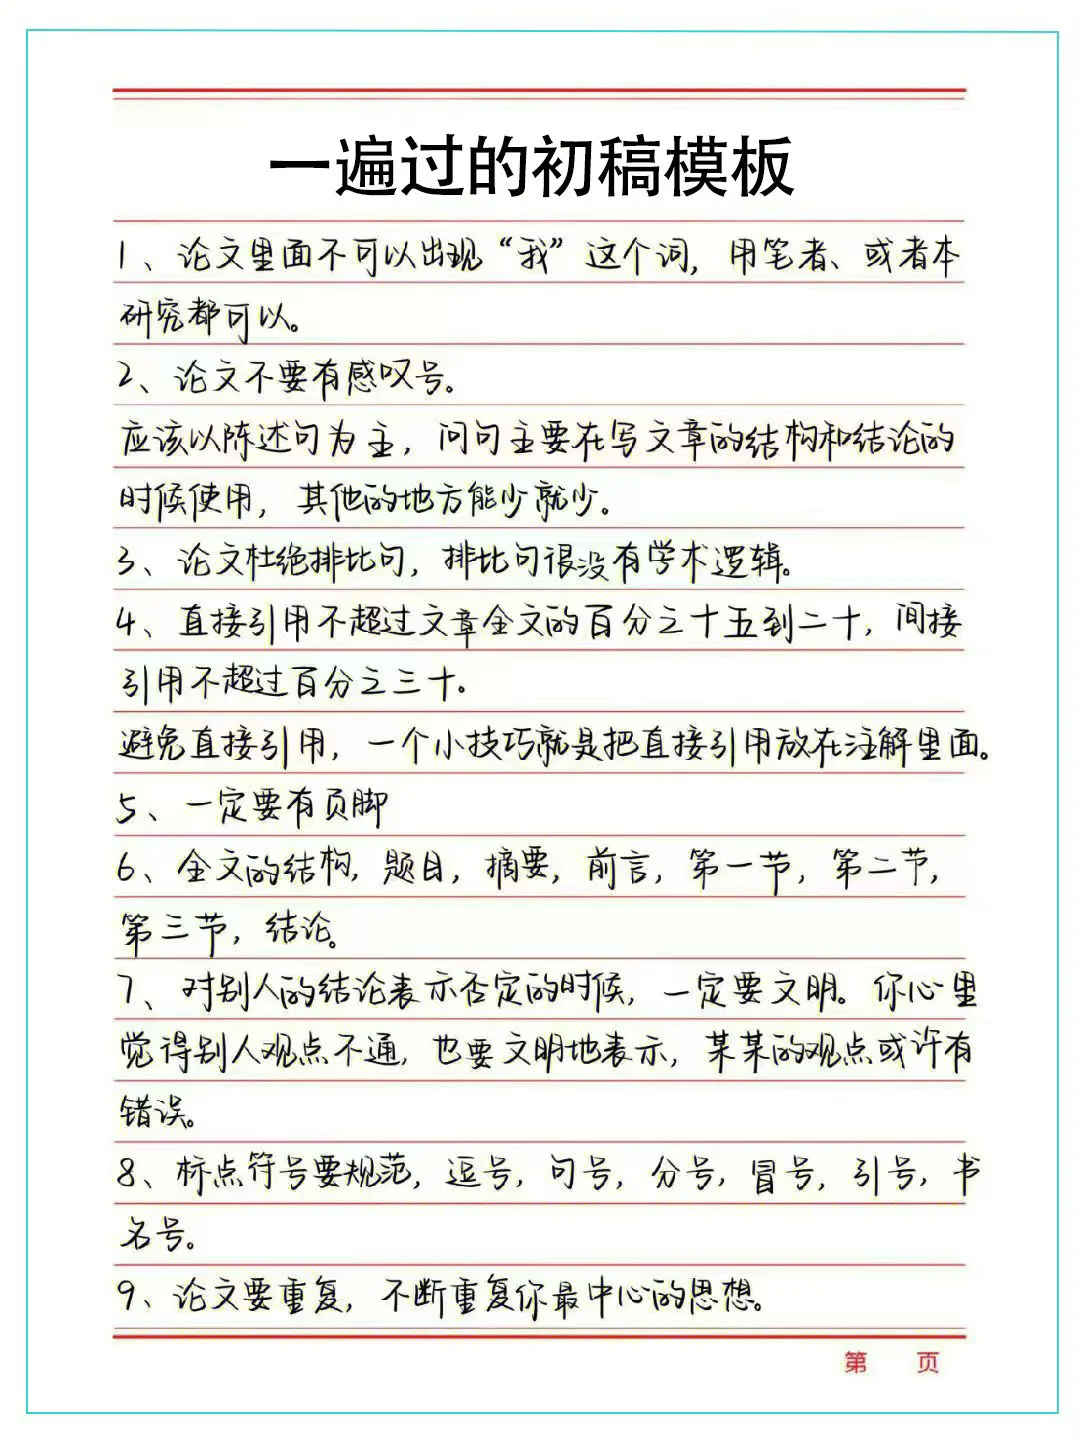 一遍过的初稿模板
1、论文里面不可以出现“我”这个词，用笔者、或者本
研究都可以。
2、论文不要有感叹号。
应该以陈述句为主，问句主要在写文章的结构和结论的
时候使用，其他的地方能少就少。
3、论文杜绝排比句，排比句很没有学术逻辑。
4、直接引用不超过文章全文的百分之十五到二十，间接
引用不超过百分之三十。
避免直接引用，一个小技巧就是把直接引用放在注解里面。
5、一定要有页脚
6、全文的结构，题目，摘要，前言，第一节，第二节，
第三节，结论。
7、对别人的结论表示否定的时候，一定要文明。你心里
觉得别人观点不通，也要文明地表示，某某的观点或许有
错误。
8、标点符号要规范，逗号，句号，分号，冒号，引号，书
名号。
9、论文要重复，不断重复你最中心的思想。
第 页